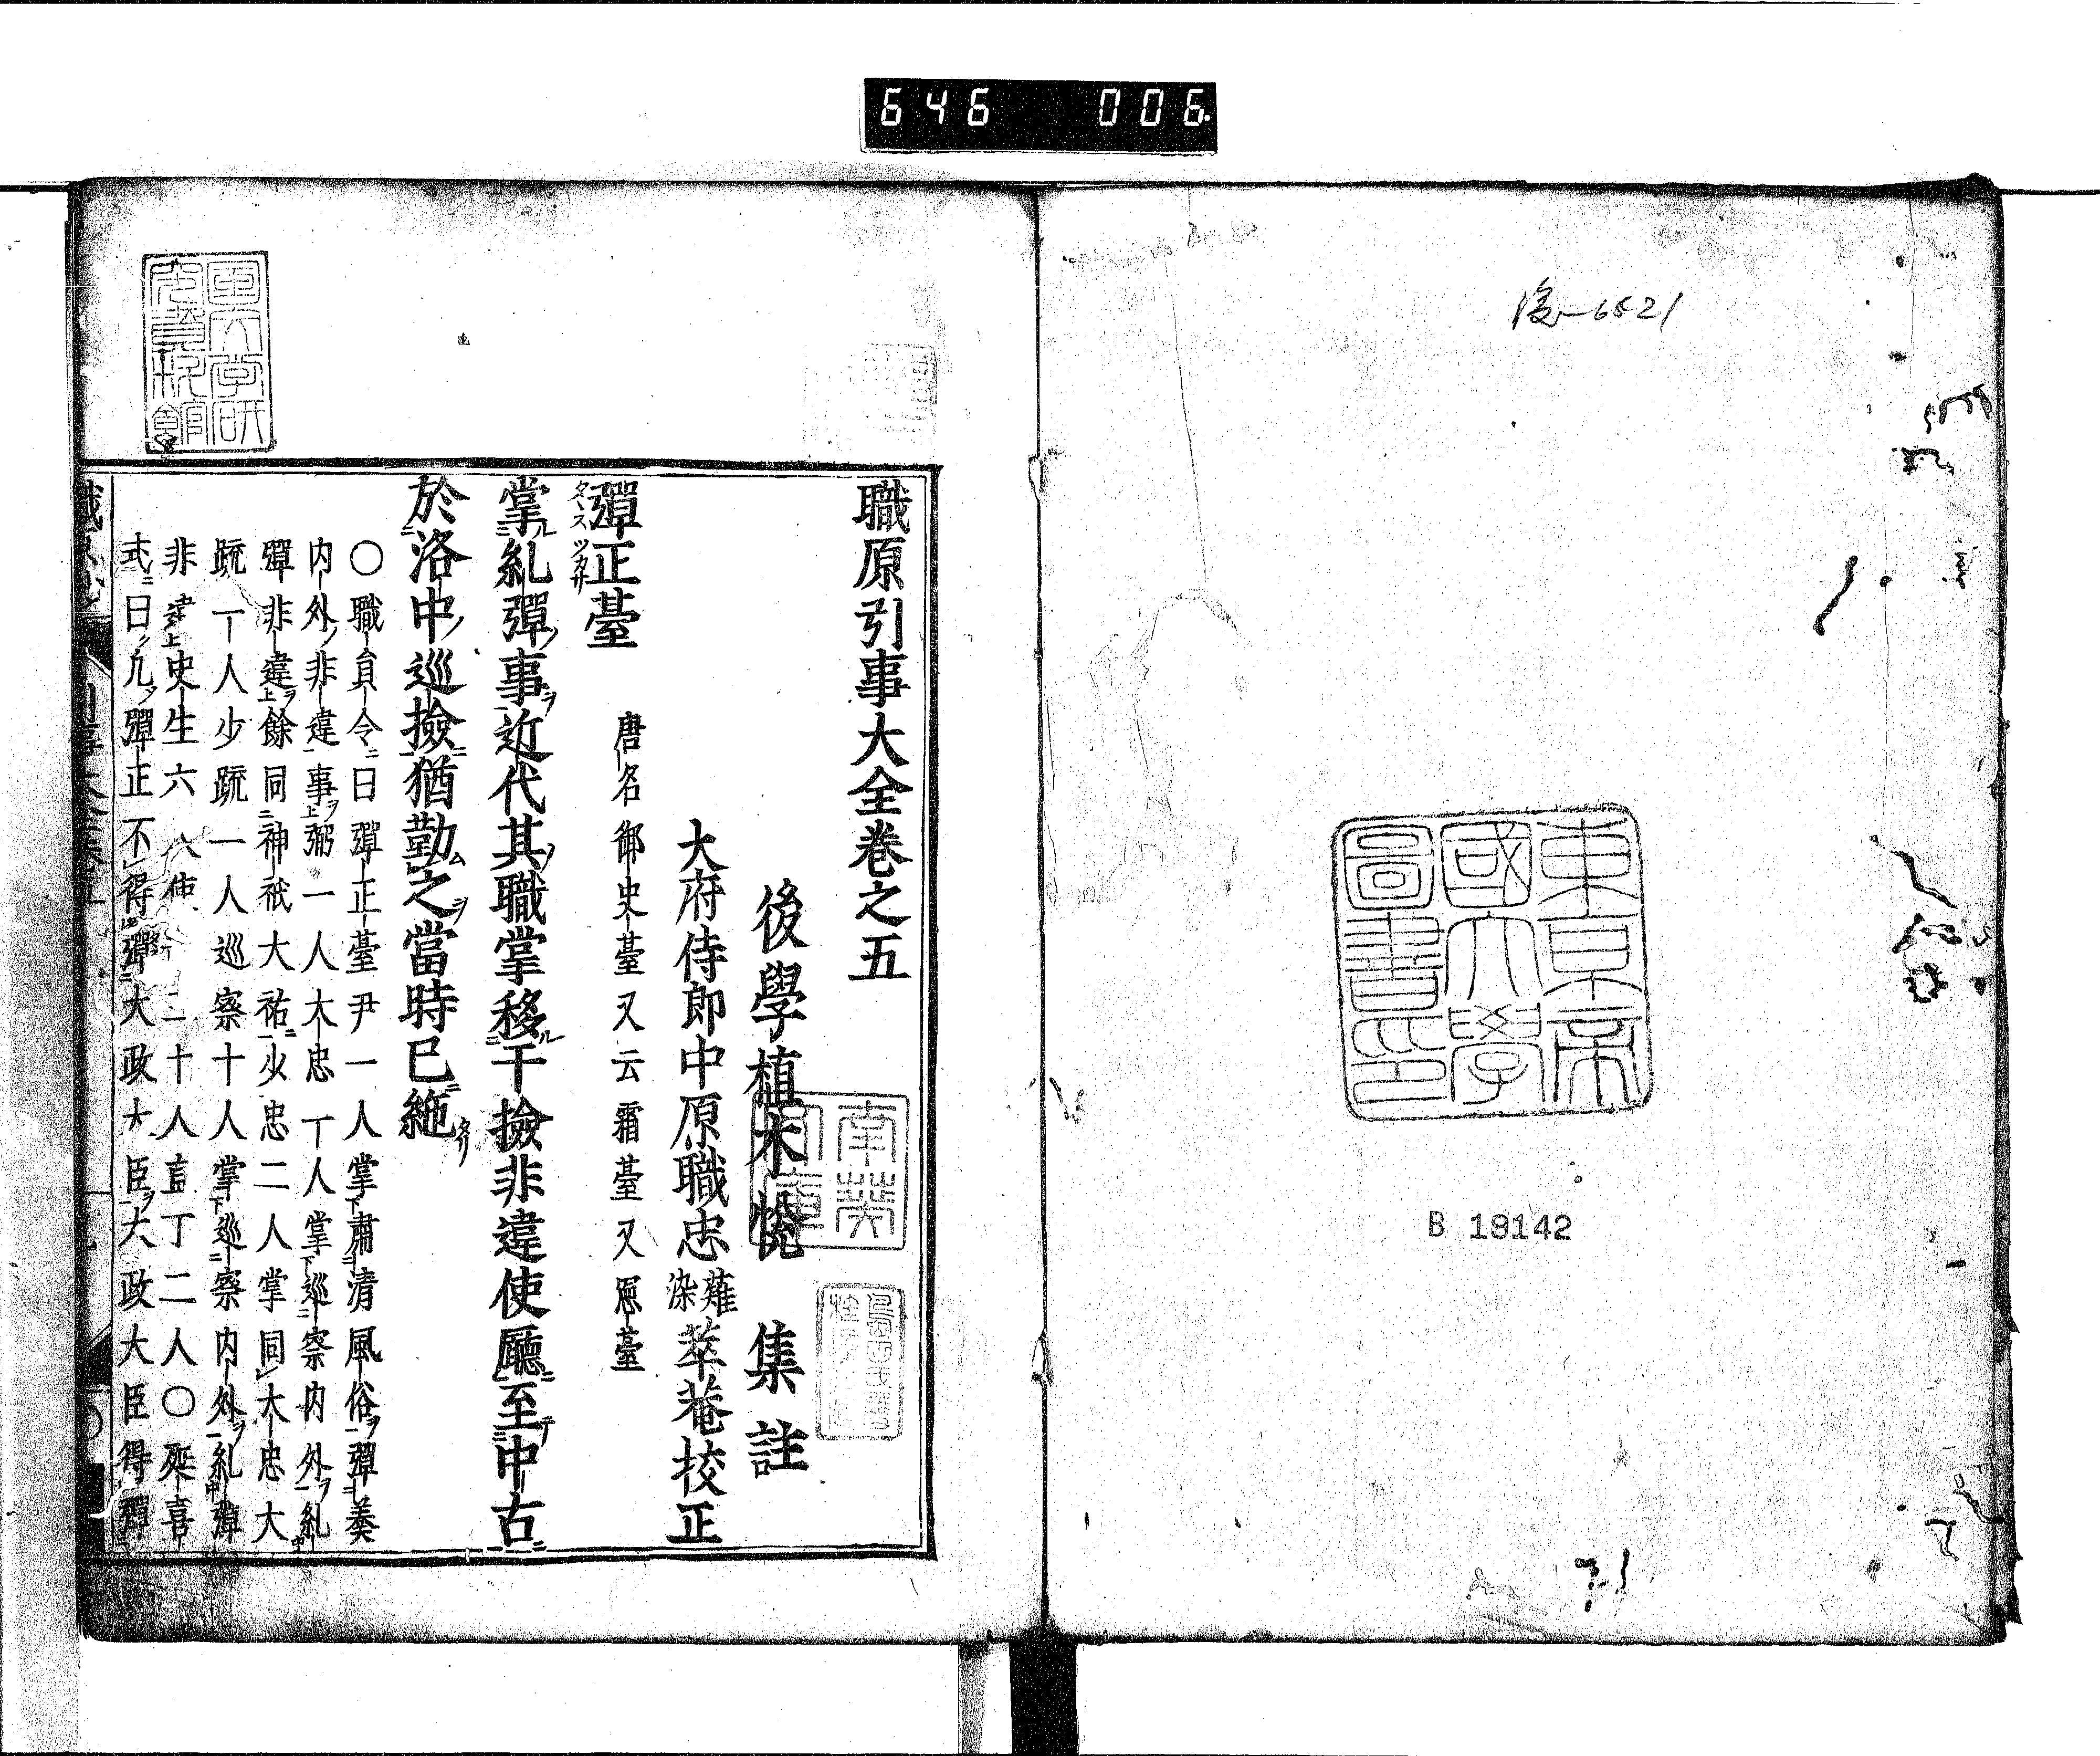 646 006
後-6521
東京帝
國大學
圖書印
B 19142
職原引事大全巻之五
後學植木悦 集註
大府侍郎中原職忠薙染萃菴挍正
彈正臺 唐名御史臺又云霜臺又憲臺
タヽス ツカサ
掌糺彈事近代其職掌移于撿非違使廳至中古
於洛中巡撿猶勤之當時已絁
〇職員令曰彈正臺尹一人掌肅清風俗彈奏
内外非違事弼一人大忠一人掌巡察内外糺
彈非違餘同神祇大祐少忠二人掌同大忠大
䟽一人少䟽一人巡察十人掌巡察内外糺彈
非違史生六人使部二十人直丁二人〇延喜
式曰凡彈正不得彈大政大臣大政大臣得彈